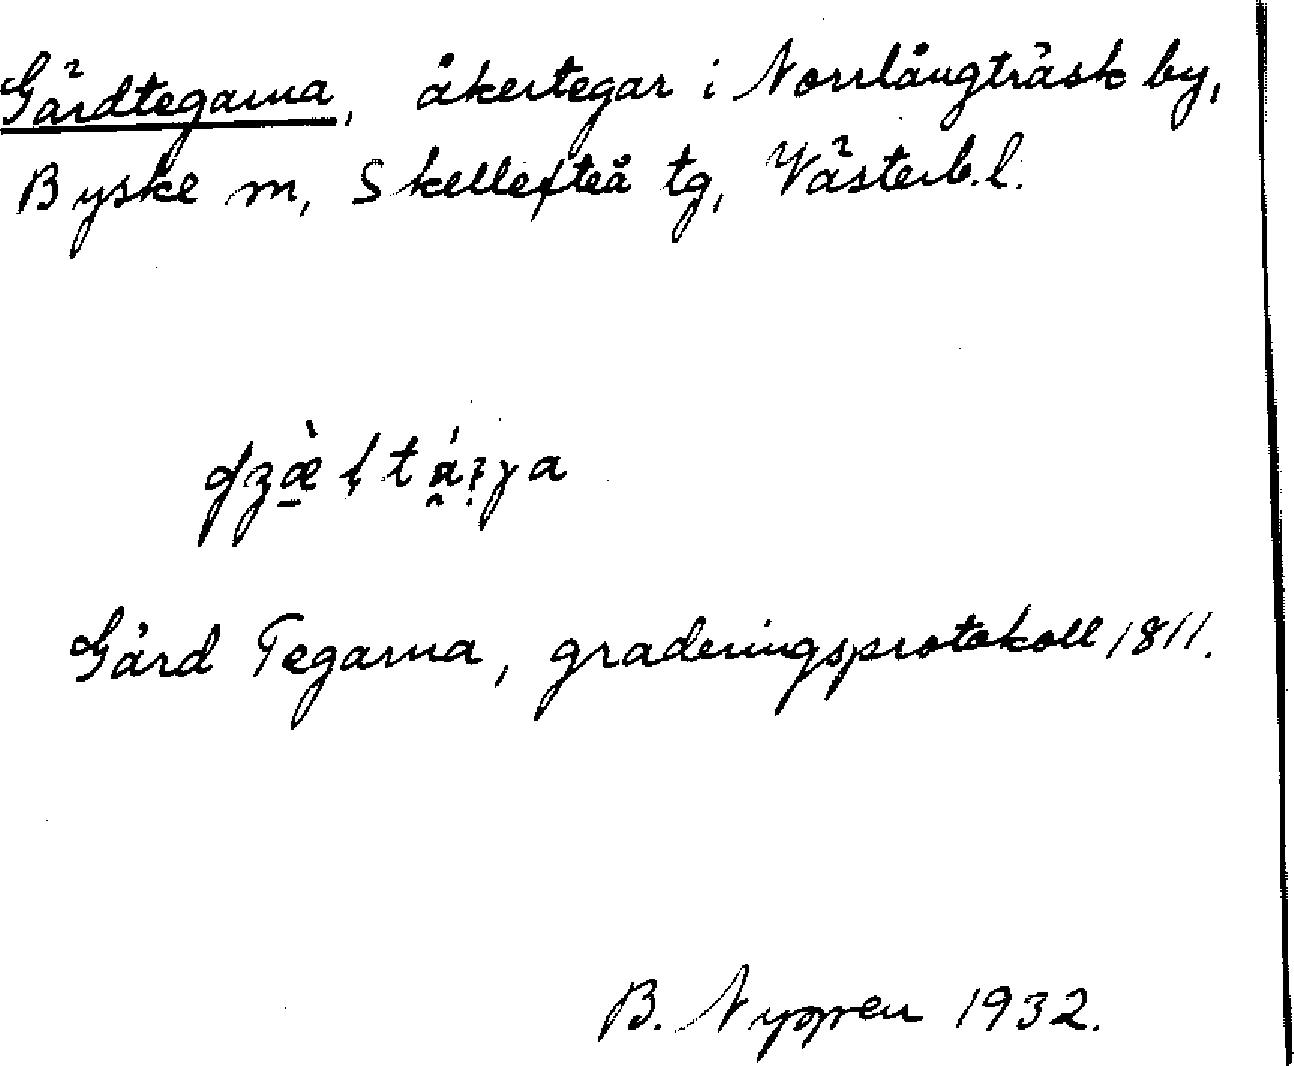 Gärdtegarna, åkertegar i Norrlångträsk by,
Byske m, Skellefteå tg, Västerb.l.
Gärd Tegarna, graderingsprotokoll 1811.
B. Nyppen 1932.